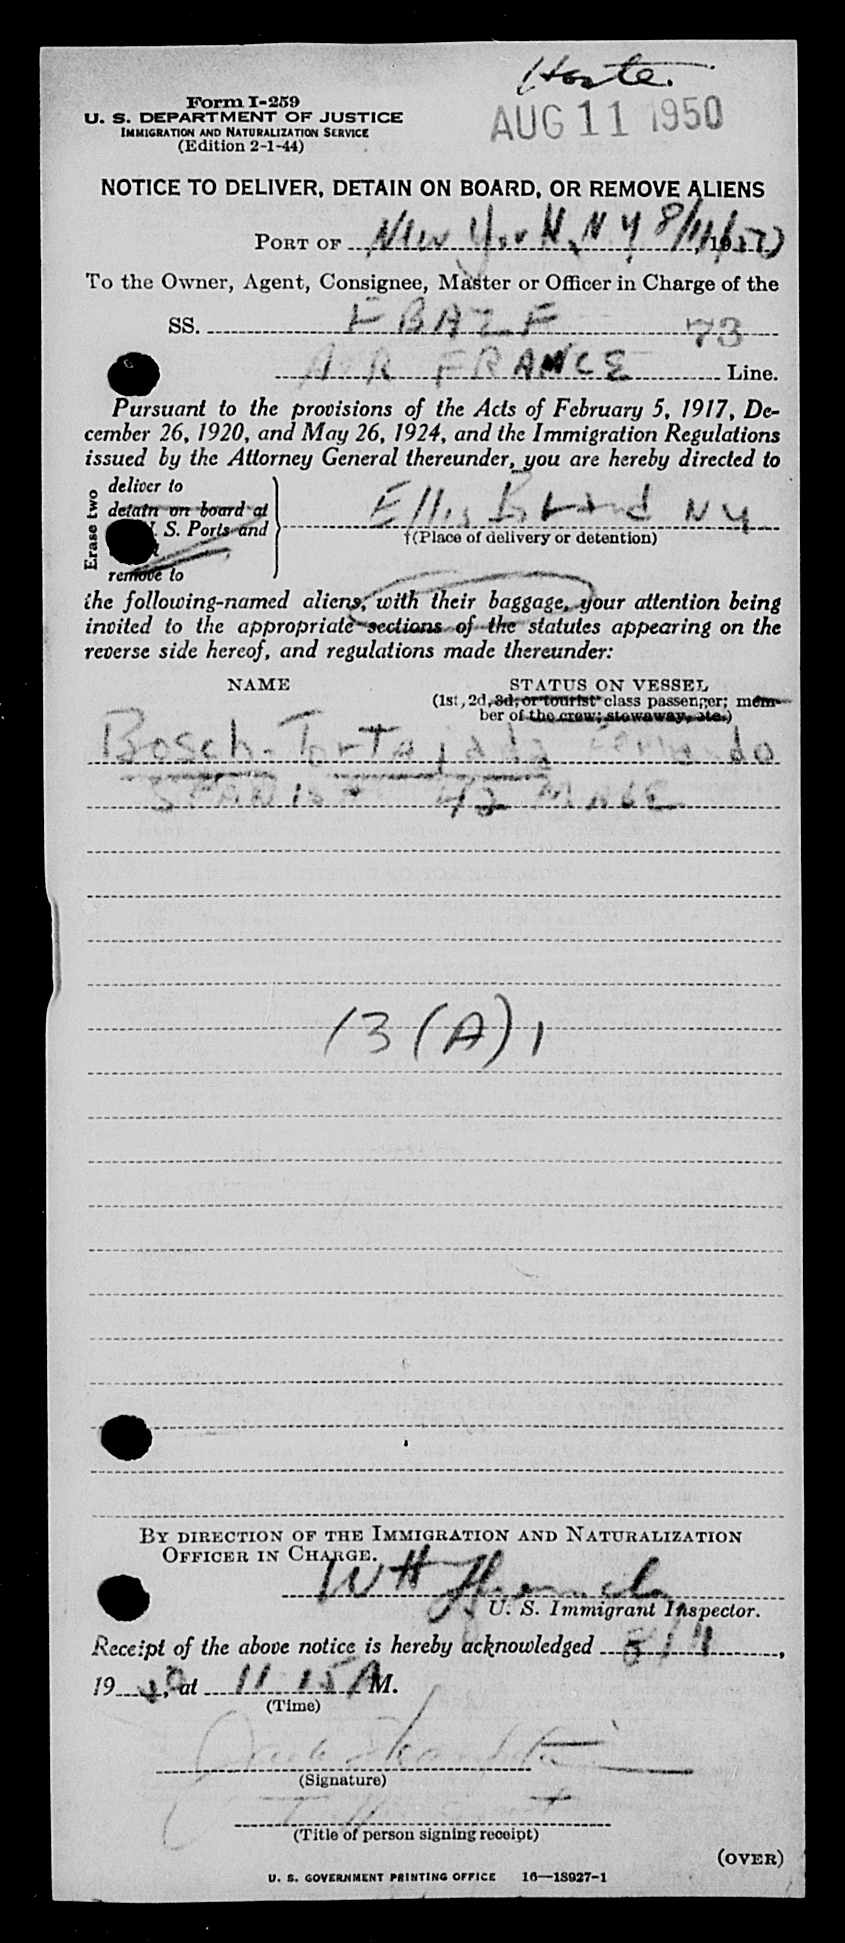 Form I-259
U. S. DEPARTMENT OF JUSTICE
IMMIGRATION AND NATURALIZATION SERVICE
(Edition 2-1-44)
AUG 11 1950
NOTICE TO DELIVER, DETAIN ON BOARD, OR REMOVE ALIENS
PORT OF New York, NY 8/11/1950
To the Owner, Agent, Consignee, Master or Officer in Charge of the
SS. FBAZF 73
AIR FRANCE Line.
Pursuant to the provisions of the Acts of February 5, 1917, De-
cember 26, 1920, and May 26, 1924, and the Immigration Regulations
issued by the Attorney General thereunder, you are hereby directed to
Erase two
deliver to
detain on board at
S. Ports and
remove to
Ellis Island NY
†(Place of delivery or detention)
the following-named aliens, with their baggage, your attention being
invited to the appropriate sections of the statutes appearing on the
reverse side hereof, and regulations made thereunder:
NAME STATUS ON VESSEL
(1st, 2d, 3d, or tourist class passenger; mem-
ber of the crew; stowaway, etc.)
Bosch-Tortajada Fernando
SPANISH 42 MALE
13 (A) 1
BY DIRECTION OF THE IMMIGRATION AND NATURALIZATION
OFFICER IN CHARGE.
U. S. Immigrant Inspector.
Receipt of the above notice is hereby acknowledged 8/11,
19 50, at 11 15 A M.
(Time)
(Signature)
(Title of person signing receipt)
(OVER)
U. S. GOVERNMENT PRINTING OFFICE 16—18927-1